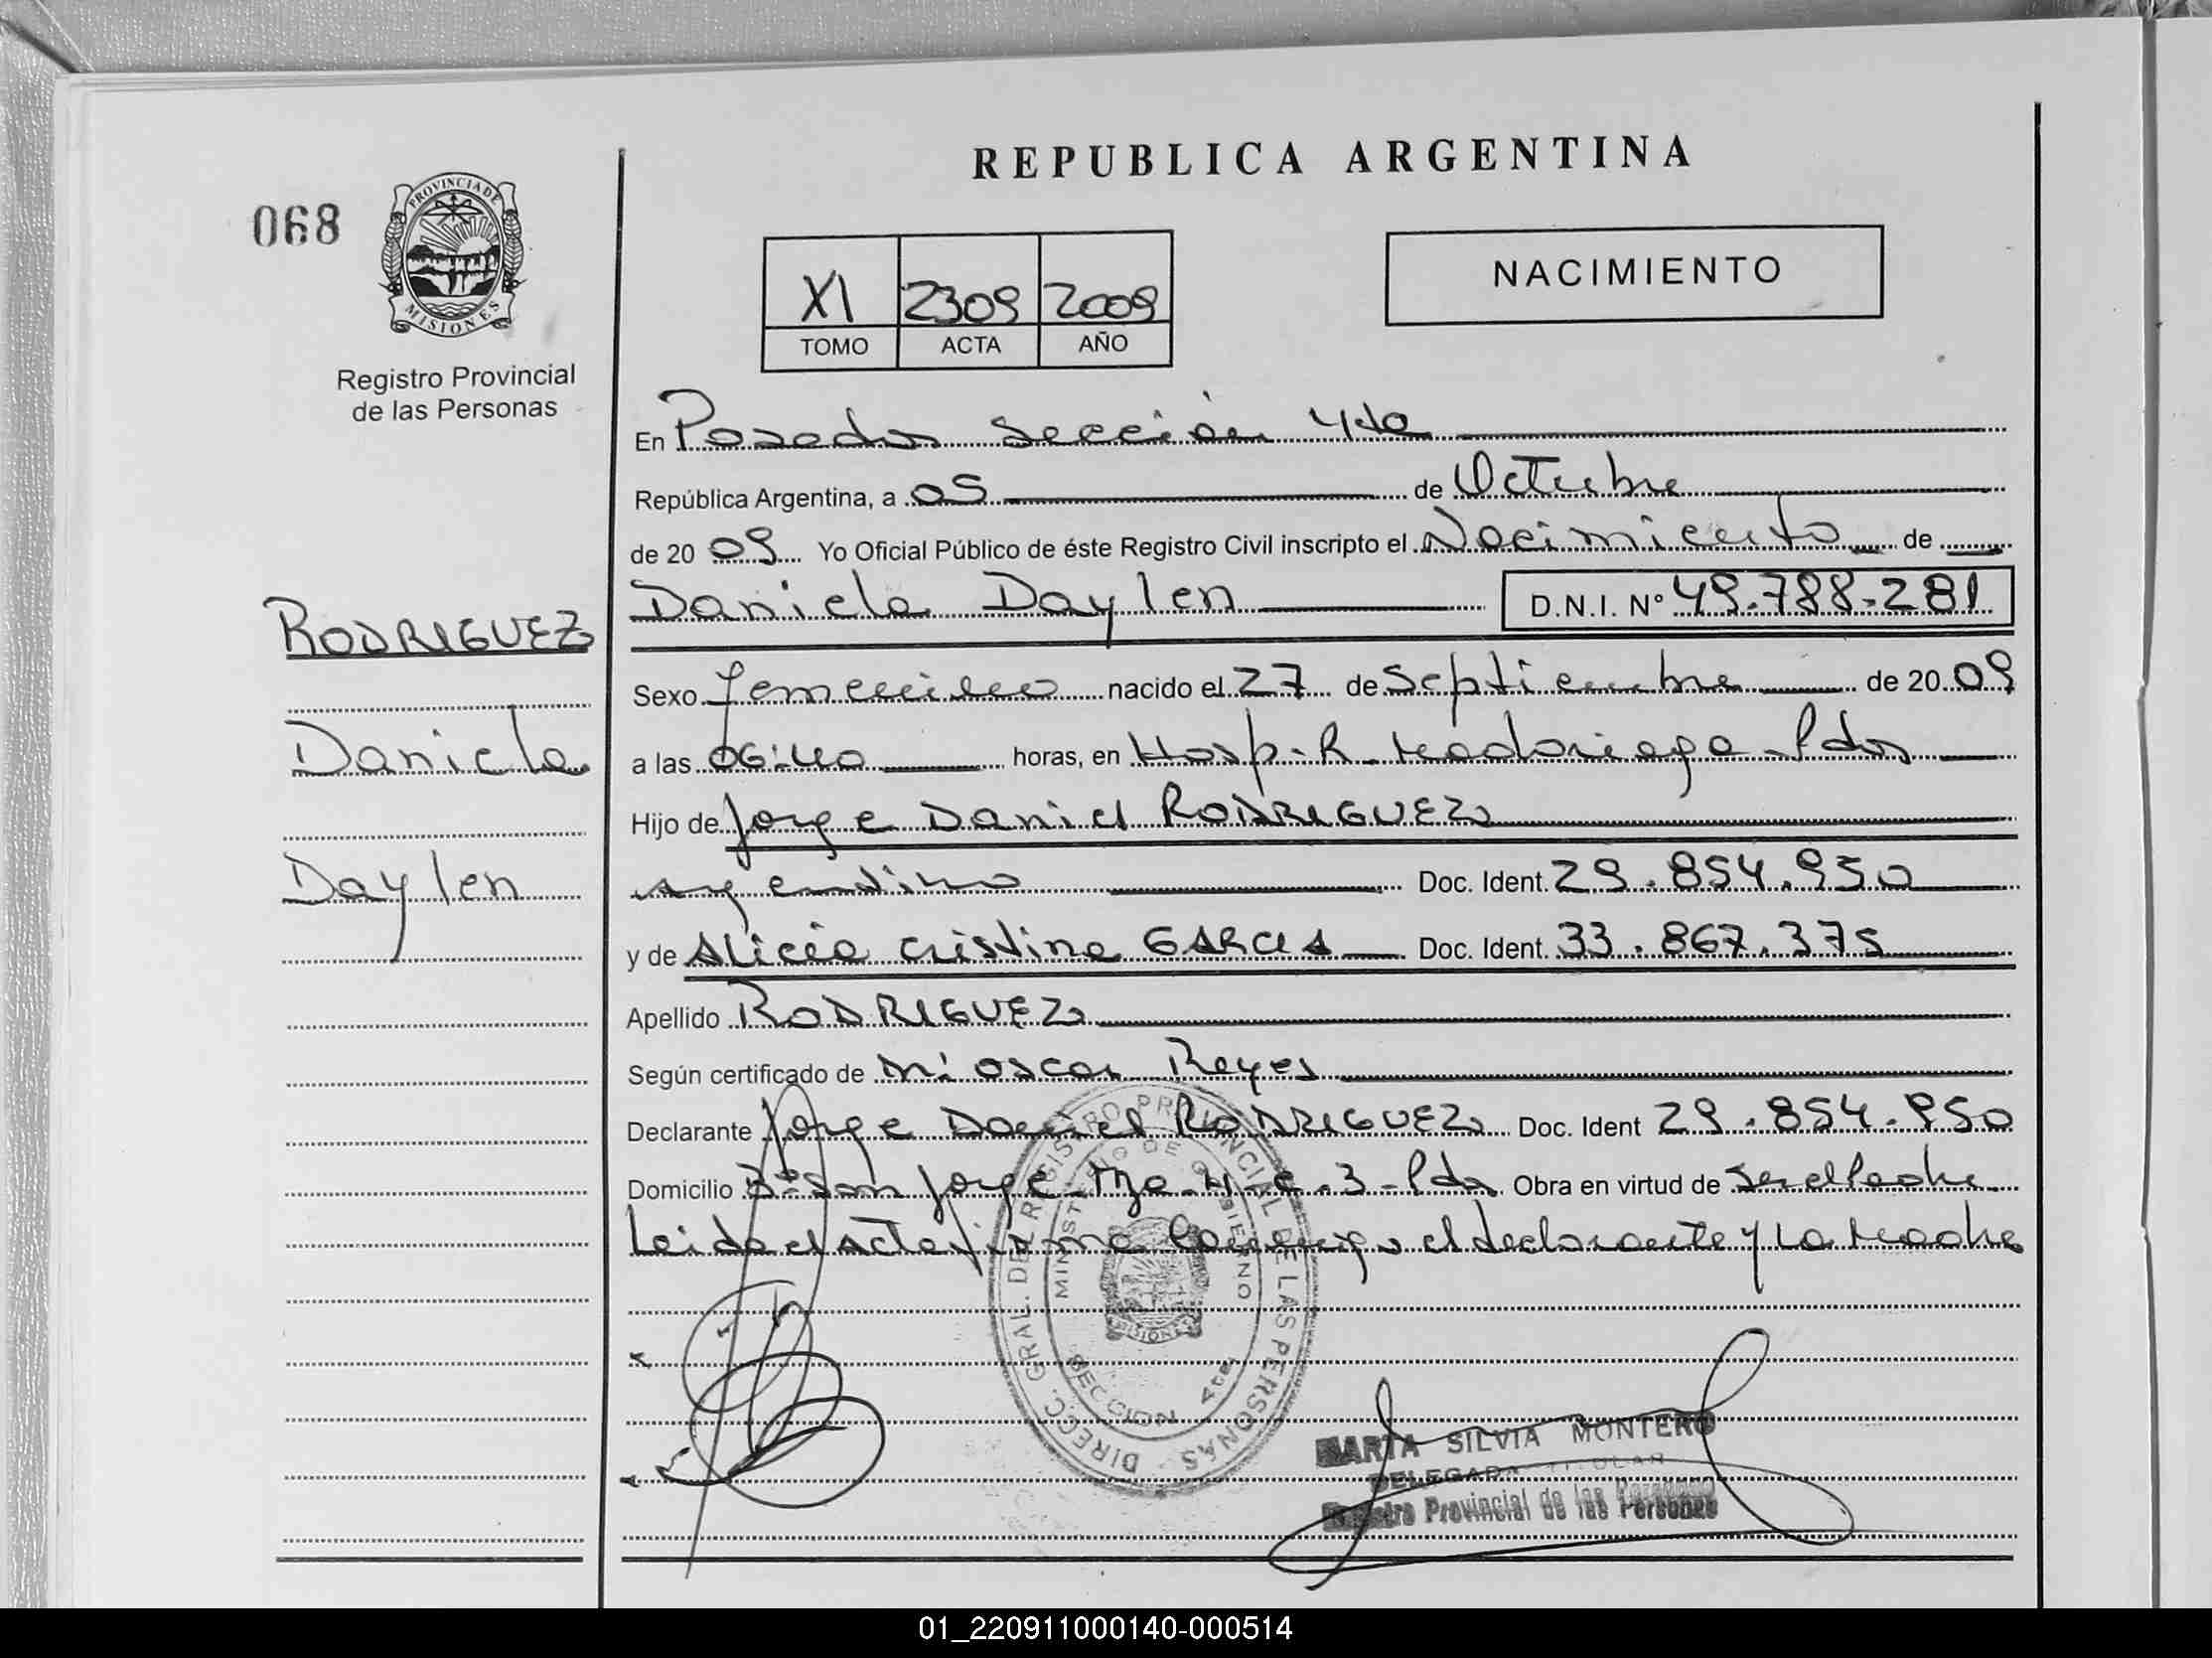 REPUBLICA ARGENTINA
068
PROVINCIA DE
MISIONES
Registro Provincial
de las Personas
XI 2309 2009
TOMO ACTA AÑO
NACIMIENTO
En Posadas Sección 4ta
República Argentina, a 05 de Octubre
de 20 09 Yo Oficial Público de éste Registro Civil inscripto el Nacimiento de
Daniela Daylen D.N.I. Nº 49.788.281
RODRIGUEZ
Daniela
Daylen
Sexo femenino nacido el 27 de Septiembre de 20 09
a las 06:40 horas, en Hosp. R. Madariaga - Pdas
Hijo de Jorge Daniel RODRIGUEZ
argentino Doc. Ident. 29.854.950
y de Alicia Cristina GARCIA Doc. Ident. 33.867.375
Apellido RODRIGUEZ
Según certificado de Oscar Reyes
Declarante Jorge Daniel RODRIGUEZ Doc. Ident 29.854.950
Domicilio Bº San Jorge - Mza. 4 - C. 3 - Pdas Obra en virtud de Ser el Padre
Leida el Acta firma conmigo el declarante y La Madre
DIRECC. GRAL. DE REGISTRO PROVINCIAL DE LAS PERSONAS
MINISTERIO DE GOBIERNO
MISIONES
SECCION 4ta
MARTA SILVIA MONTERO
DELEGADA TITULAR
Registro Provincial de las Personas
01_220911000140-000514